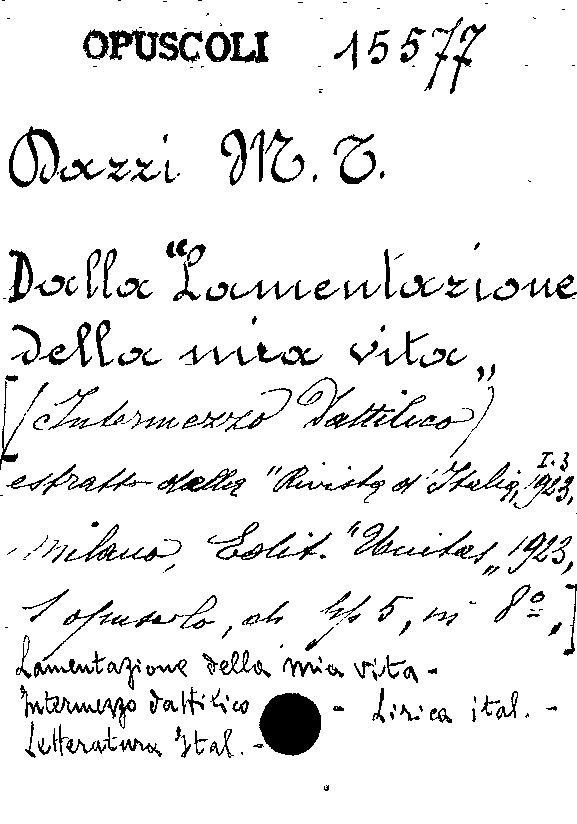 OPUSCOLI 15577
Dazzi M. T.
Dalla "Lamentazione
della mia vita„
[(Intermezzo Dattilico)
estratto dalla "Rivista d'Italia„ I.3 1923,
Milano, Edit. "Unitas„ 1923,
1 opuscolo, di pp 5, in 8º„]
Lamentazione della mia vita -
Intermezzo dattilico - Lirica ital. -
Letteratura Ital. -